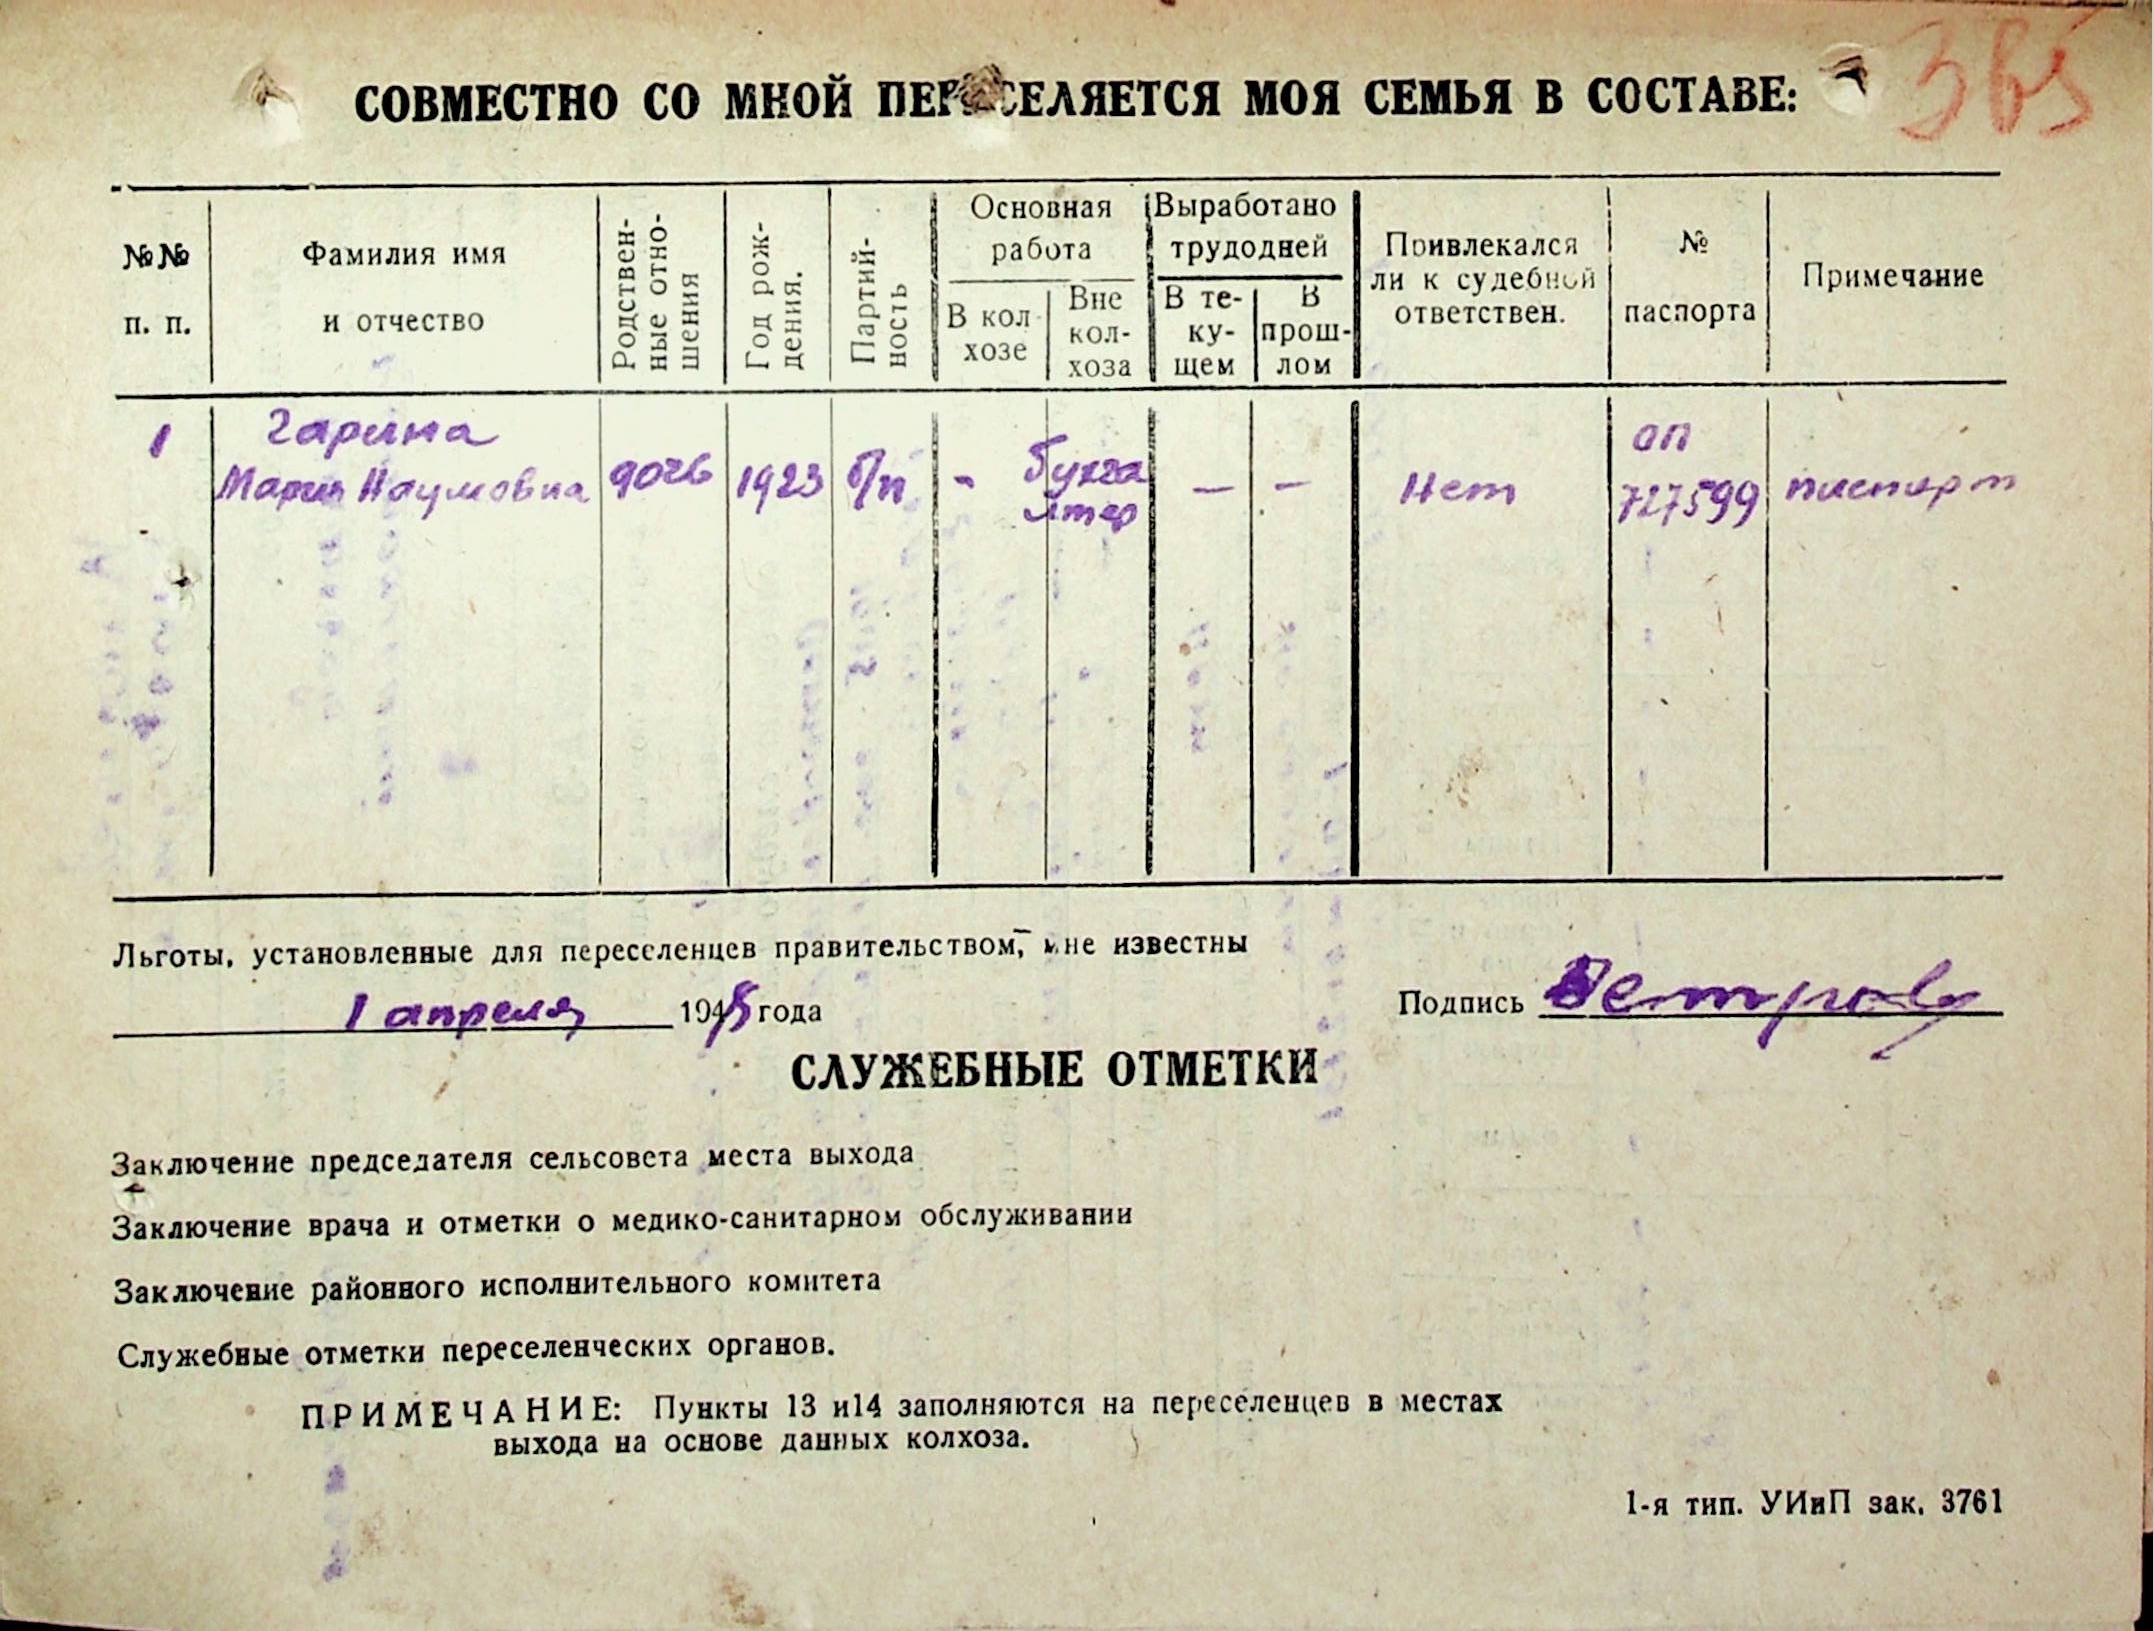 365
СОВМЕСТНО СО МНОЙ ПЕРЕСЕЛЯЕТСЯ МОЯ СЕМЬЯ В СОСТАВЕ:
№№
п. п.
Фамилия имя
и отчество
Родствен-
ные отно-
шения
Год рож-
дения.
Партий-
ность
Основная
работа
В кол-
хозе
Вне
кол-
хоза
Выработано
трудодней
В те-
ку-
щем
В
прош-
лом
Привлекался
ли к судебной
ответствен.
№
паспорта
Примечание
1
Гарина
Мария Наумовна
дочь
1923
б/п
-
бухга
лтер
—
—
Нет
ОП
727599
паспорт
Льготы, установленные для переселенцев правительством, мне известны
1 апреля 1948 года
Подпись
СЛУЖЕБНЫЕ ОТМЕТКИ
Заключение председателя сельсовета места выхода
Заключение врача и отметки о медико-санитарном обслуживании
Заключение районного исполнительного комитета
Служебные отметки переселенческих органов.
ПРИМЕЧАНИЕ: Пункты 13 и14 заполняются на переселенцев в местах
выхода на основе данных колхоза.
1-я тип. УИиП зак. 3761